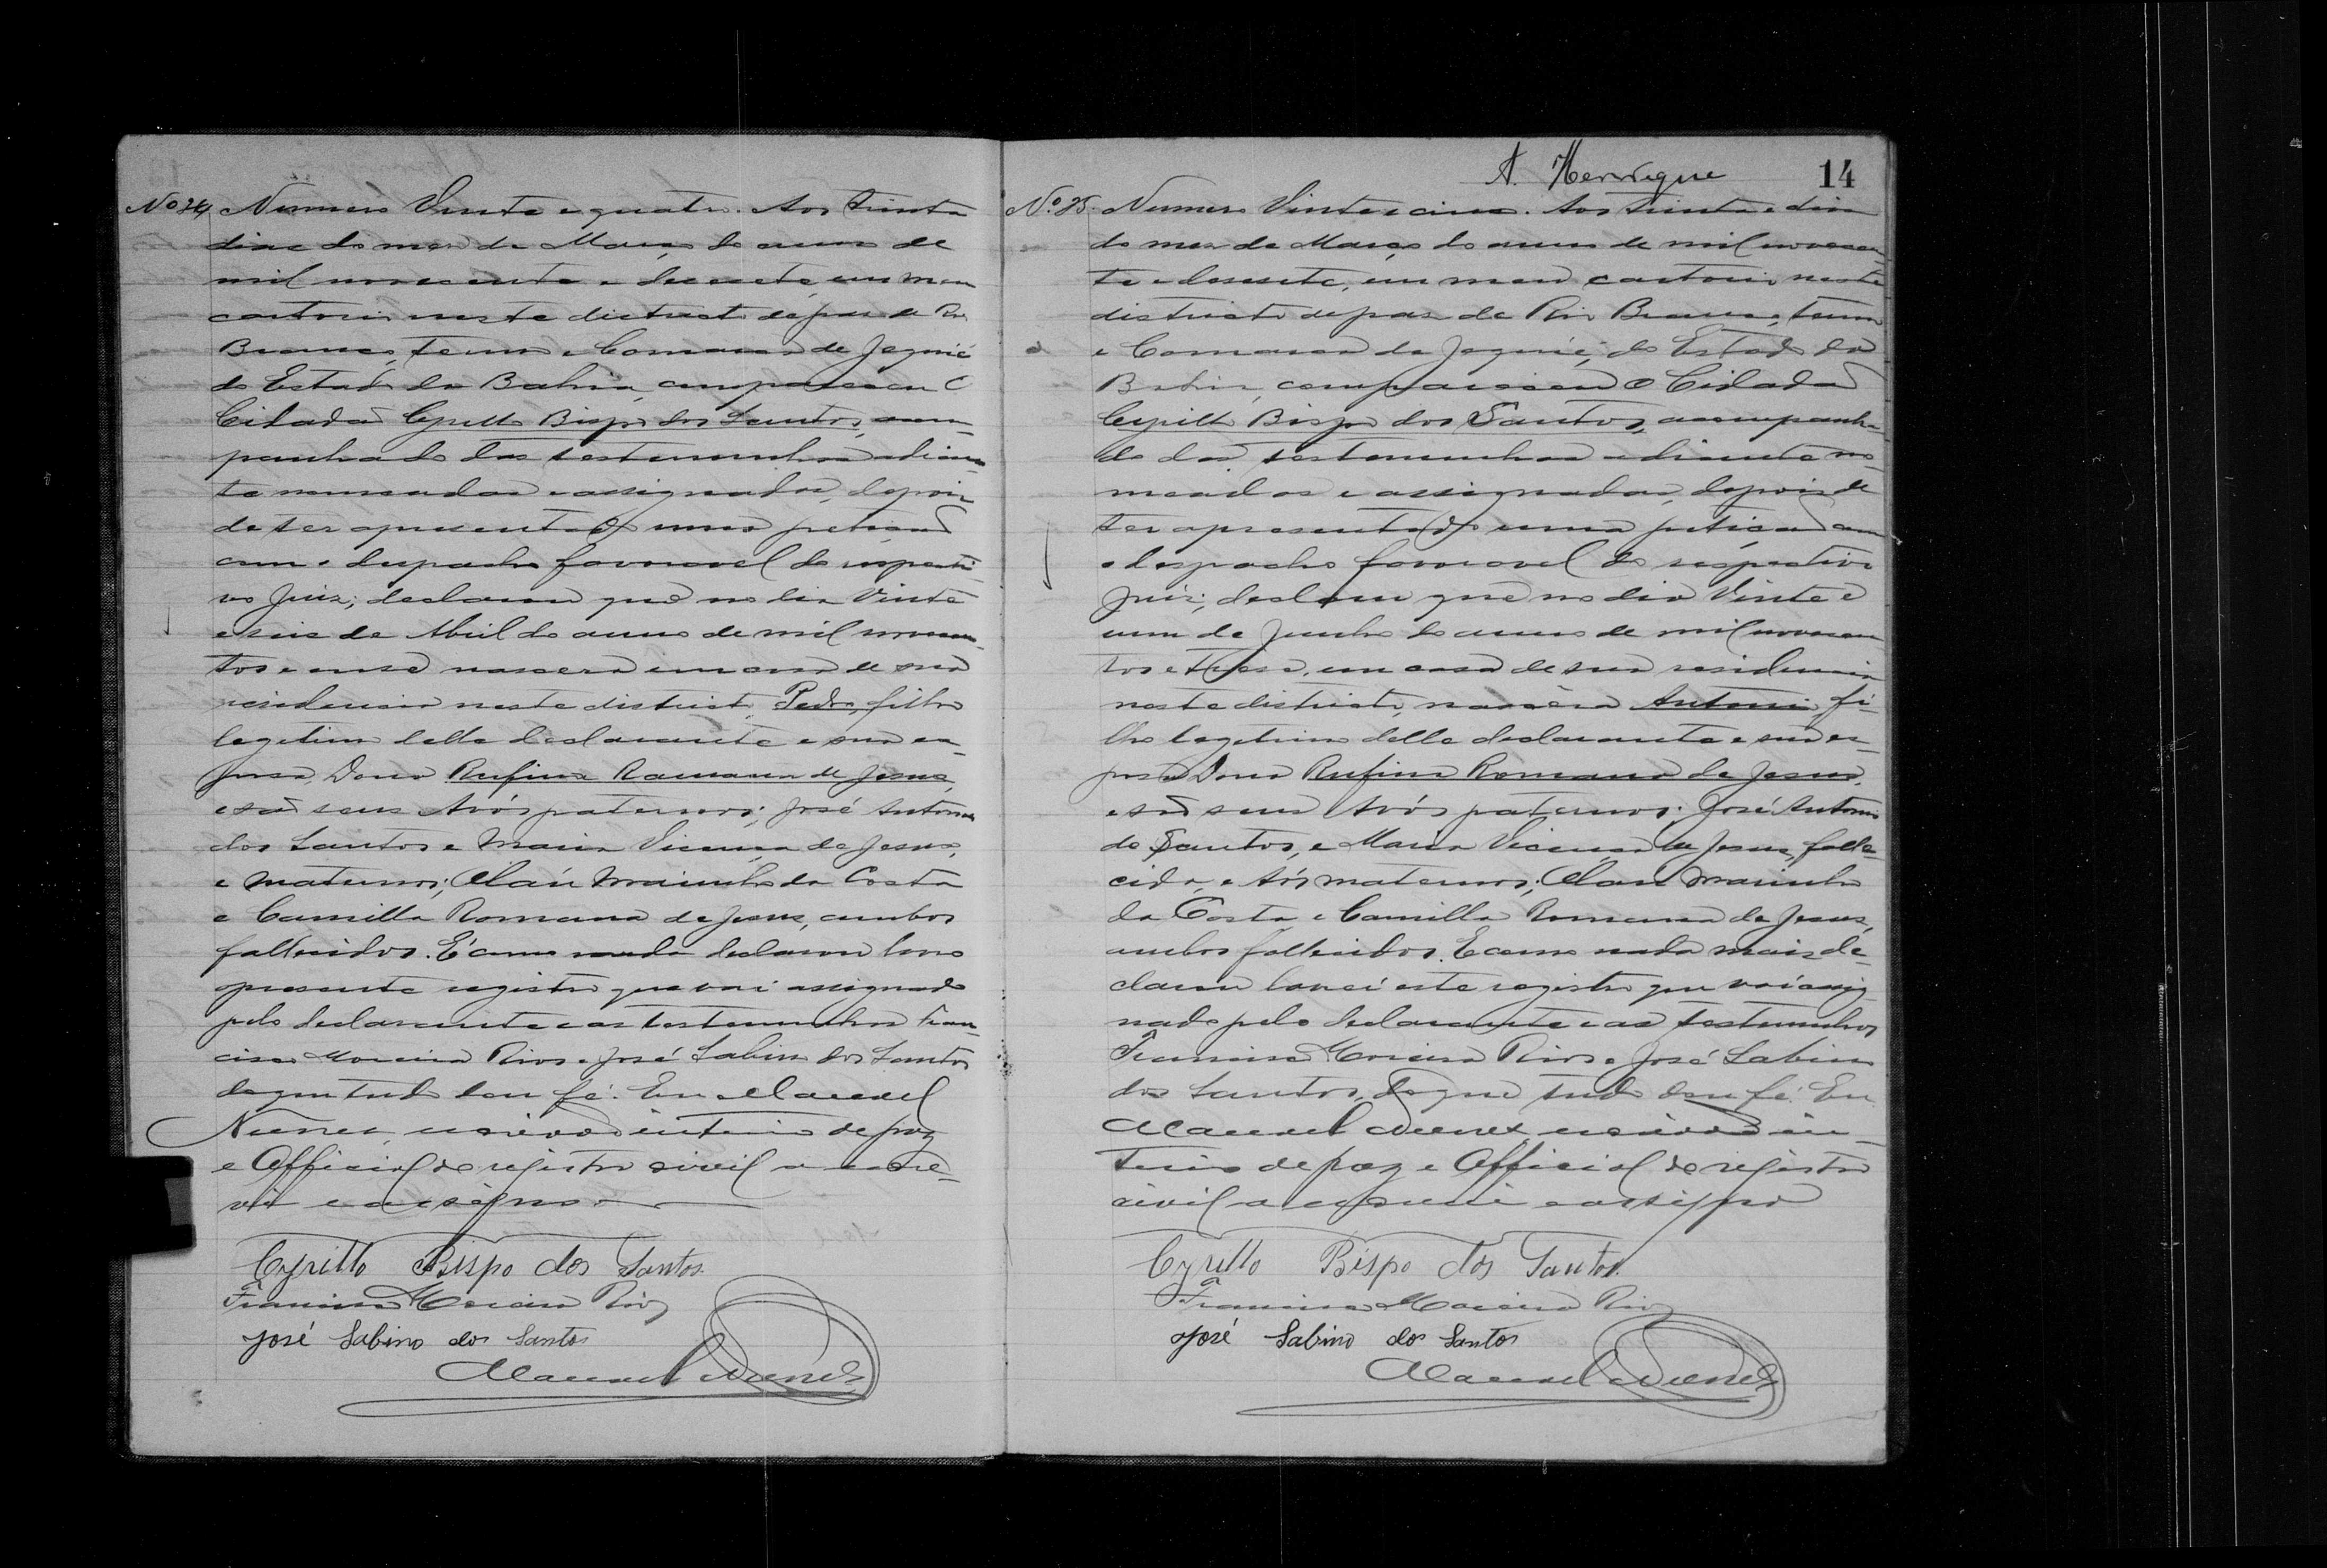 Nº 24 Numero Vinte e quatro. Aos trinta
dias do mez de Março do anno de
mil novecento e desesete, em meu
cartorio neste districto de paz de Rio
Branco, termo e Comarca de Jequié
do Estado da Bahia, compareceu O
Cidadão Cyrillo Bispo dos Santos, acom-
panhado das testemunhas adian-
te nomeadas e assignadas, depois
de ter apresentado uma petição
com o despacho favoravel do respecti-
vo Juiz; declarou que no dia Vinte
e seis de Abril do anno de mil novecen-
tos e onse nascera em casa de sua
residencia neste districto, Pedro, filho
legetimo delle declarante e sua es-
posa, Dona Rufina Ramana de Jesus,
e são seus Avós paternos; José Antonio
dos Santos e Maria Vicença de Jesus,
e maternos; Marinho da Costa
e Camilla Romana de Jesus, ambos
fallecidos. E como nada declarou
o presente registro que vai assignado
pelo declarante e as testemunhas Fran-
cisco Moreira Rios e José Sabino dos Santos
do que tudo dou fé. Eu Manoel
Nunes, escrivão interino de paz
e Official do registro civil o escre-
vi e assigno
Cyrillo Bispo dos Santos
Francisco Moreira Rios
José Sabino dos Santos
Manoel Nunes
A. Henrique 14
Nº 25. Numero Vinte e cinco. Aos trinta e dias
do mez de Março do anno de mil novecen-
to e desesete, em meu cartorio neste
districto de paz de Rio Branco, termo
e Comarca de Jequié, do Estado da
Bahia, compareceu O Cidadão
Cyrillo Bispo dos Santos, acompanha-
do das testemunhas adiante no-
meadas e assignadas, depois de
ter apresentado uma petição com
o despacho favoravel do respectivo
Juiz; declarou que no dia Vinte e
um de Junho do anno de mil novecen-
tos e trese, em casa de sua residencia
neste districto, nascêra Antonio fi-
lho legetimo delle declarante e sua es-
posa Dona Rufina Romana de Jesus,
e são seus Avós paternos; José Antonio
do Santos, e Maria Vicença de Jesus, falle-
cida, e Avós maternos; Marinho
da Costa e Camilla Romana de Jesus,
ambos fallecidos. E como nada mais de-
clarou lancei este registro que vai assig-
nado pelo declarante e as testemunhas
Francisco Moreira Rios e José Sabino
dos Santos, do que tudo dou fé. Eu
Manoel Nunes escrivão in-
terino de paz e Official do registro
civil o escrevi e assigno
Cyrillo Bispo dos Santos
Francisco Moreira Rios
José Sabino dos Santos
Manoel Nunes